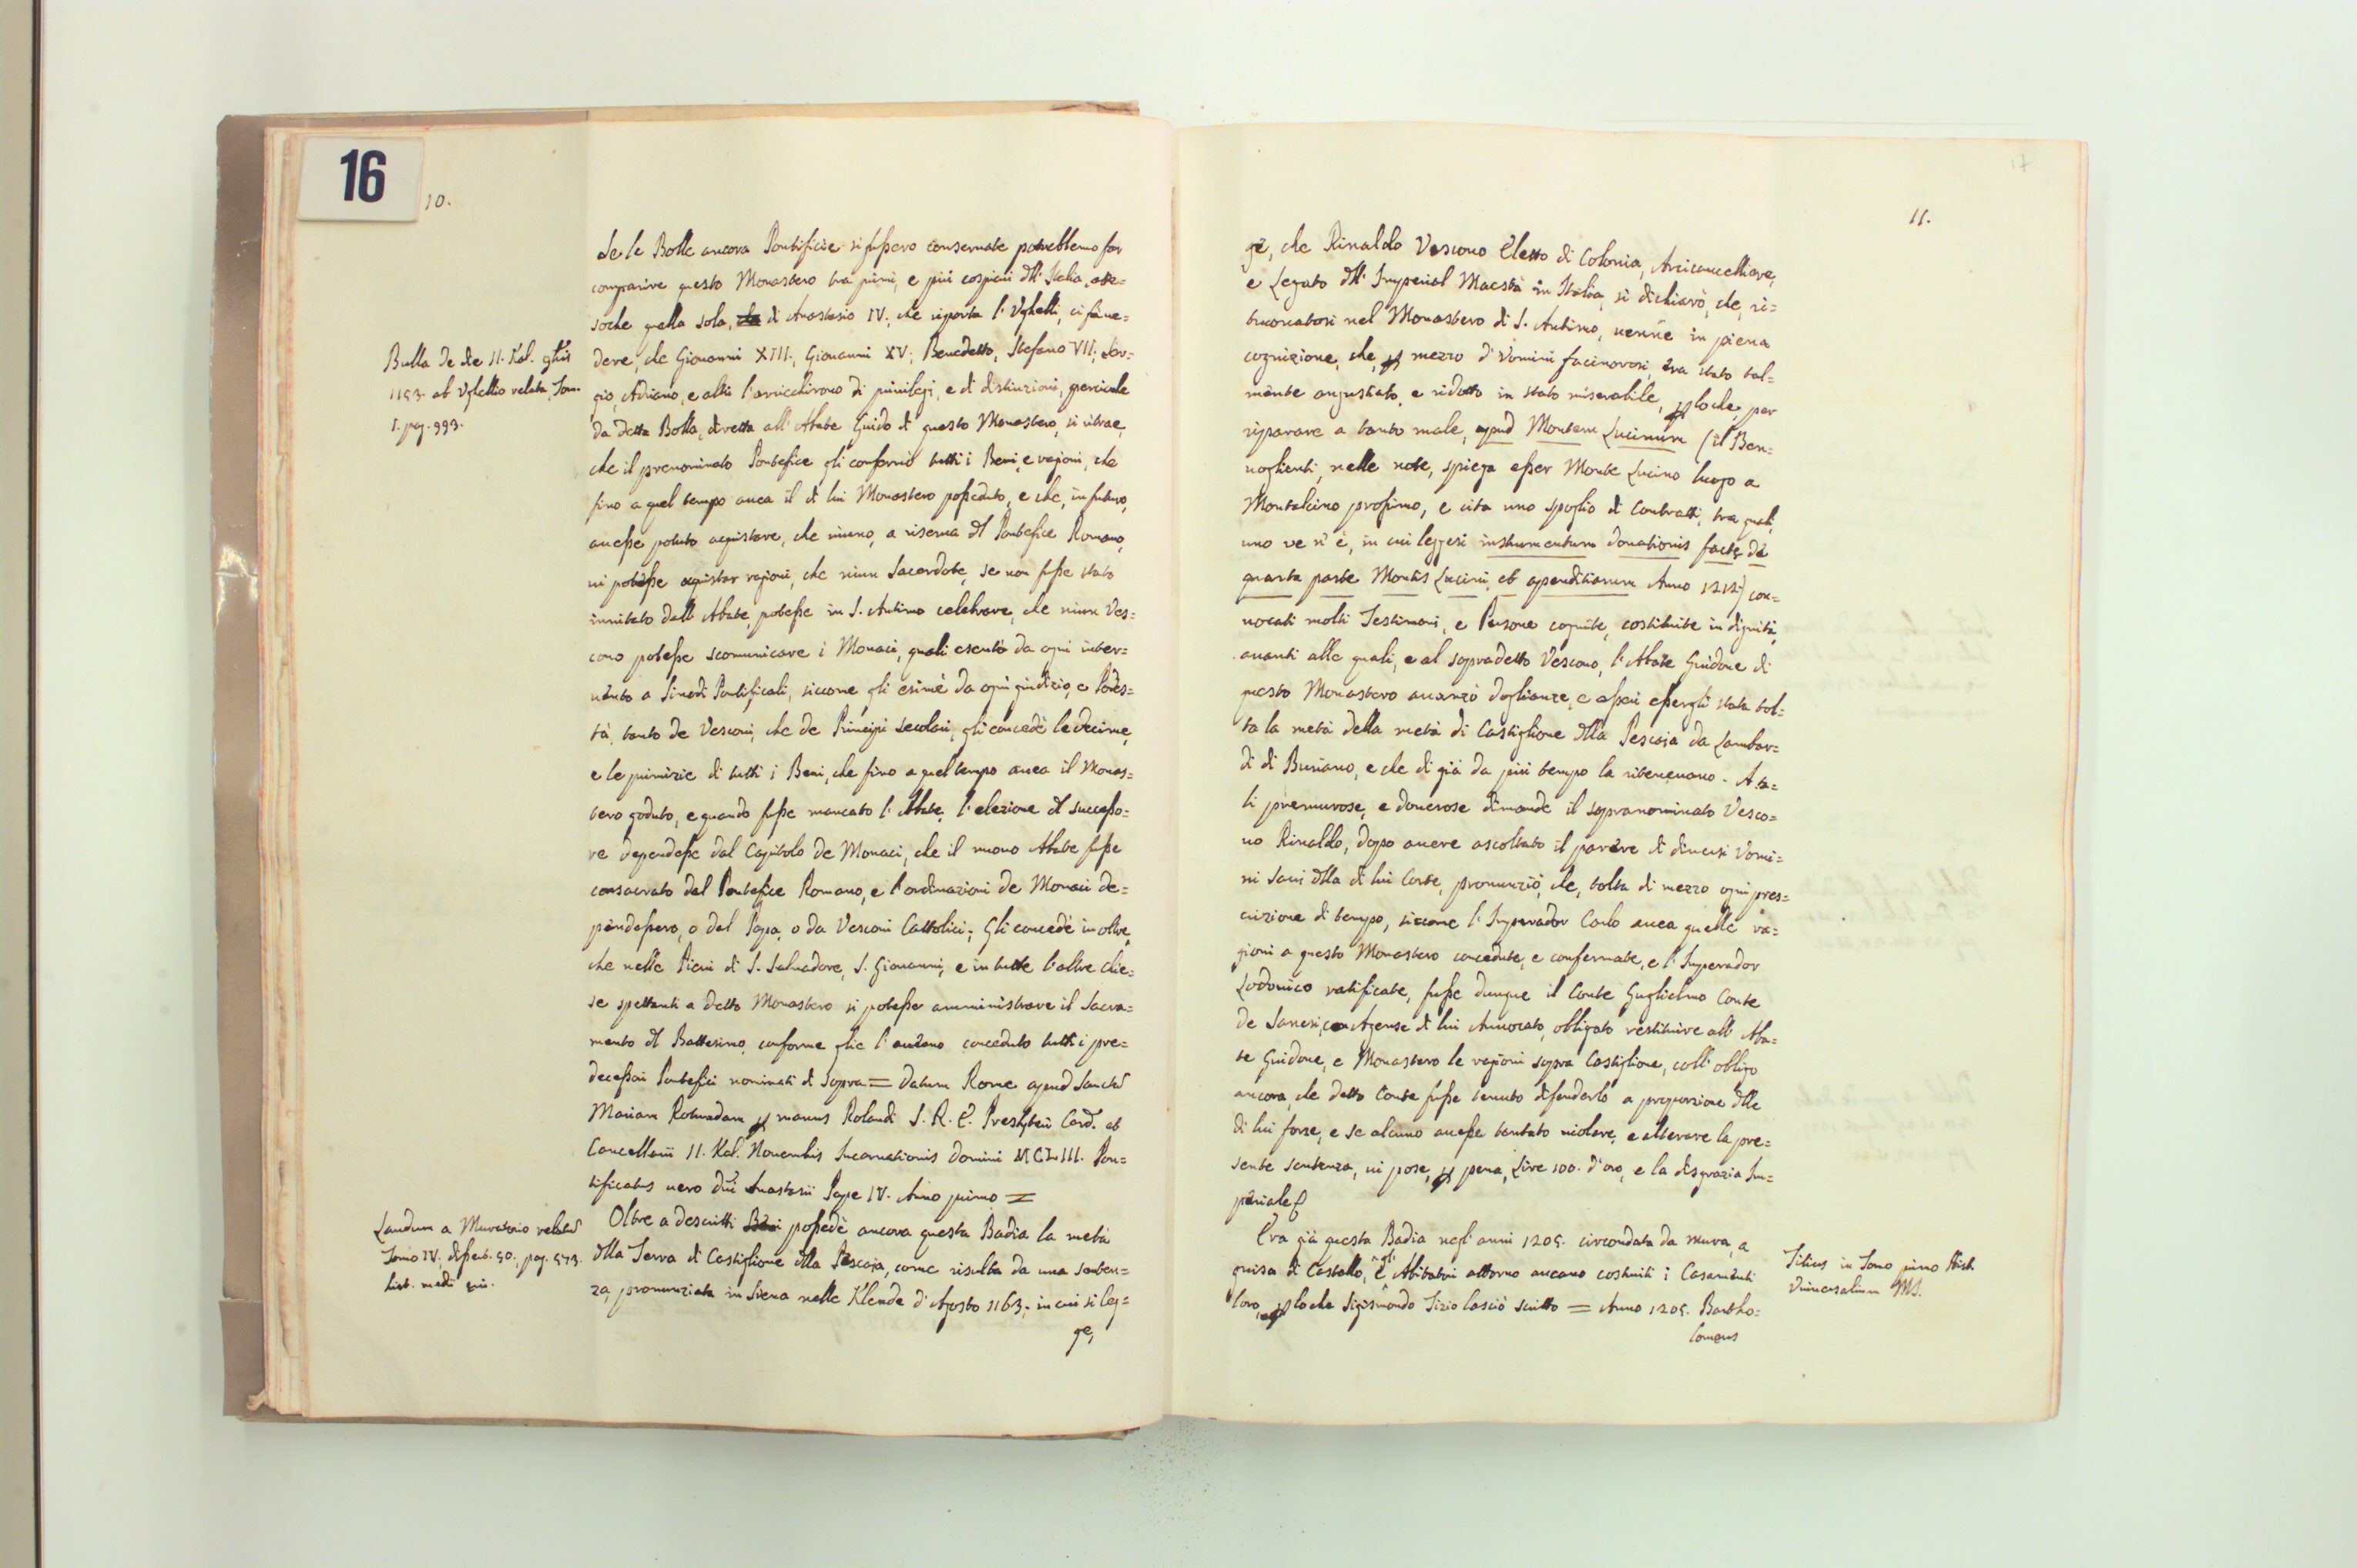 16
10.
Se le Bolle ancora Pontificie si fussero conservate potrebbemo far
comparire questo Monastero tra primi, e più cospicui dll' Italia, atte=
soche quella sola, di Anastasio IV., che riporta l' Ughelli, ci fà ve=
dere, che Giovanni XIII., Giovanni XV., Benedetto, Stefano VII., Ser=
gio, Adriano, e altri l'arricchirono di privilegi, e di distinzioni, perciocche
da detta Bolla, diretta all' Abate Guido di questo Monastero, si ritrae,
che il prenominato Pontefice gli confermò tutti i Beni, e ragioni, che
fino a quel tempo avea il di lui Monastero posseduto, e che, in futuro,
avesse potuto acquistare, che niuno, a riserva dl Pontefice Romano,
vi potesse acquistar ragioni, che niun Sacerdote, se non fusse stato
invitato dall' Abate, potesse in S. Antimo celebrare, che niun Ves=
covo potesse scomunicare i Monaci, quali esentò da ogni inter=
vento a Sinodi Pontificali, siccome gli esimè da ogni giudizio, e Podes=
tà, tanto de Vescovi, che de Principi secolari, gli concedè le decime,
e le primizie di tutti i Beni, che fino a quel tempo avea il Monas=
tero goduto, e quando fusse mancato l' Abate, l' elezione dl successo=
re dependesse dal Capitolo de Monaci, che il nuovo Abate fusse
consacrato dal Pontefice Romano, e l'ordinazioni de Monaci de=
pendessero, o dal Papa, o da Vescovi Cattolici; Gli concedè in oltre,
che nelle Pievi di S. Salvadore, S. Giovanni, e in tutte l'altre Chie=
se spettanti a detto Monastero si potesse amministrare il Sacra=
mento dl Battesimo, conforme glie l' aveano conceduto tutti i pre=
decessori Pontefici nominati di sopra = Datum Rome apud Sanctã
Mariam Rotundam p manus Rolandi S. R. E. Presbyteri Card. et
Cancellarii II. Kal. Novembris Incarnationis Domini MCLIII. Pon=
tificatus vero dni Anastasii Pape IV. Anno primo =
Oltre a descritti possedè ancora questa Badia la metà
dlla Terra di Castiglione dlla Pescaja, come risulta da una senten=
za, pronunziata in Siena nelle Klende d' Agosto 1163., in cui si leg=
ge,
Bulla de die II. Kal. 9bris
1153. ab Ughellio relata, Tom.
I. pag. 993.
Laudum a Muratorio relatũ
Tomo IV., dissert. 50., pag. 573.
hist. medi evi.
17
11.
ge, che Rinaldo Vescovo Eletto di Colonia, Arcicancelliere,
e Legato dll' Imperial Maestà in Italia, si dichiarò, che, ri=
trovatosi nel Monastero di S. Antimo, venne in piena
cognizione, che, p mezzo d' Uomini facinorosi, era stato tal=
mente angustiato, e ridotto in stato miserabile, ploche, per
riparare a tanto male, apud Montem Lucinum (il Ben=
voglienti, nelle note, spiega esser Monte Lucino luogo a
Montalcino prossimo, e cita uno spoglio di Contratti, tra quali,
uno ve n' è, in cui leggesi instrumentum donationis facte de
quarta parte Montis Lucini, et apenditiarum Anno 1212.) con=
vocati molti Testimoni, e Persone cognite, costituite in dignità,
avanti alle quali, e al sopradetto Vescovo, l' Abate Guidone di
questo Monastero avanzò doglianze, e essergli stata tol=
ta la metà della metà di Castiglione dlla Pescaja da Lambar=
di di Buriano, e che di già da più tempo la ritenevano. A ta=
li premurose, e doverose dimande il sopranominato Vesco=
vo Rinaldo, dopo avere ascoltato il parere di diversi Uomi=
ni savi dlla di lui Corte, pronunziò, che, tolta di mezzo ogni pres=
crizione di tempo, siccome l' Imperador Carlo avea quelle ra=
gioni a questo Monastero concedute, e confermate, e l' Imperador
Lodovico ratificate, fusse dunque il Conte Guglielmo Conte
de Sanesi, con di lui Avvocato, obligato restituire all' Aba=
te Guidone, e Monastero le ragioni sopra Castiglione, coll' obligo
ancora, che detto Conte fusse tenuto difenderlo a proporzione dlle
di lui forze, e se alcuno avesse tentato violare, e alterare la pre=
sente sentenza, vi pose, p pena, Lire 100. d' oro, e la disgrazia Im=
periale
Era già questa Badia negl' anni 1205. circondata da mura, a
guisa di Castello, e gl' Abitatori attorno aveano costruiti i Casamenti
loro, ploche Sigismondo Tizio lasciò scritto = Anno 1205. Bartho=
lomeus
Titius in Tomo primo Hist.
Universalium MS.